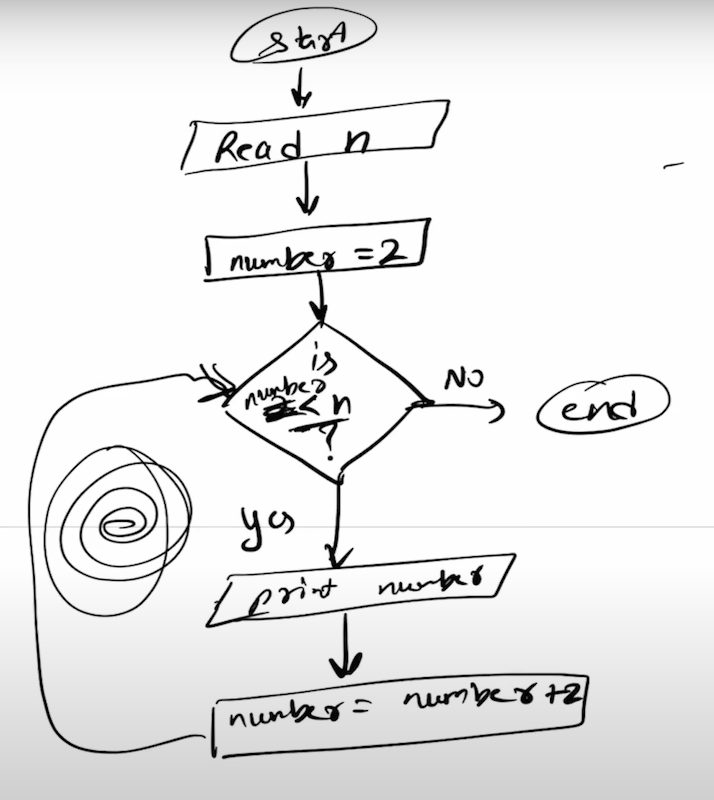 start
Read n
number = 2
is
number
< n
?
NO
end
yes
print number
number = number + 2